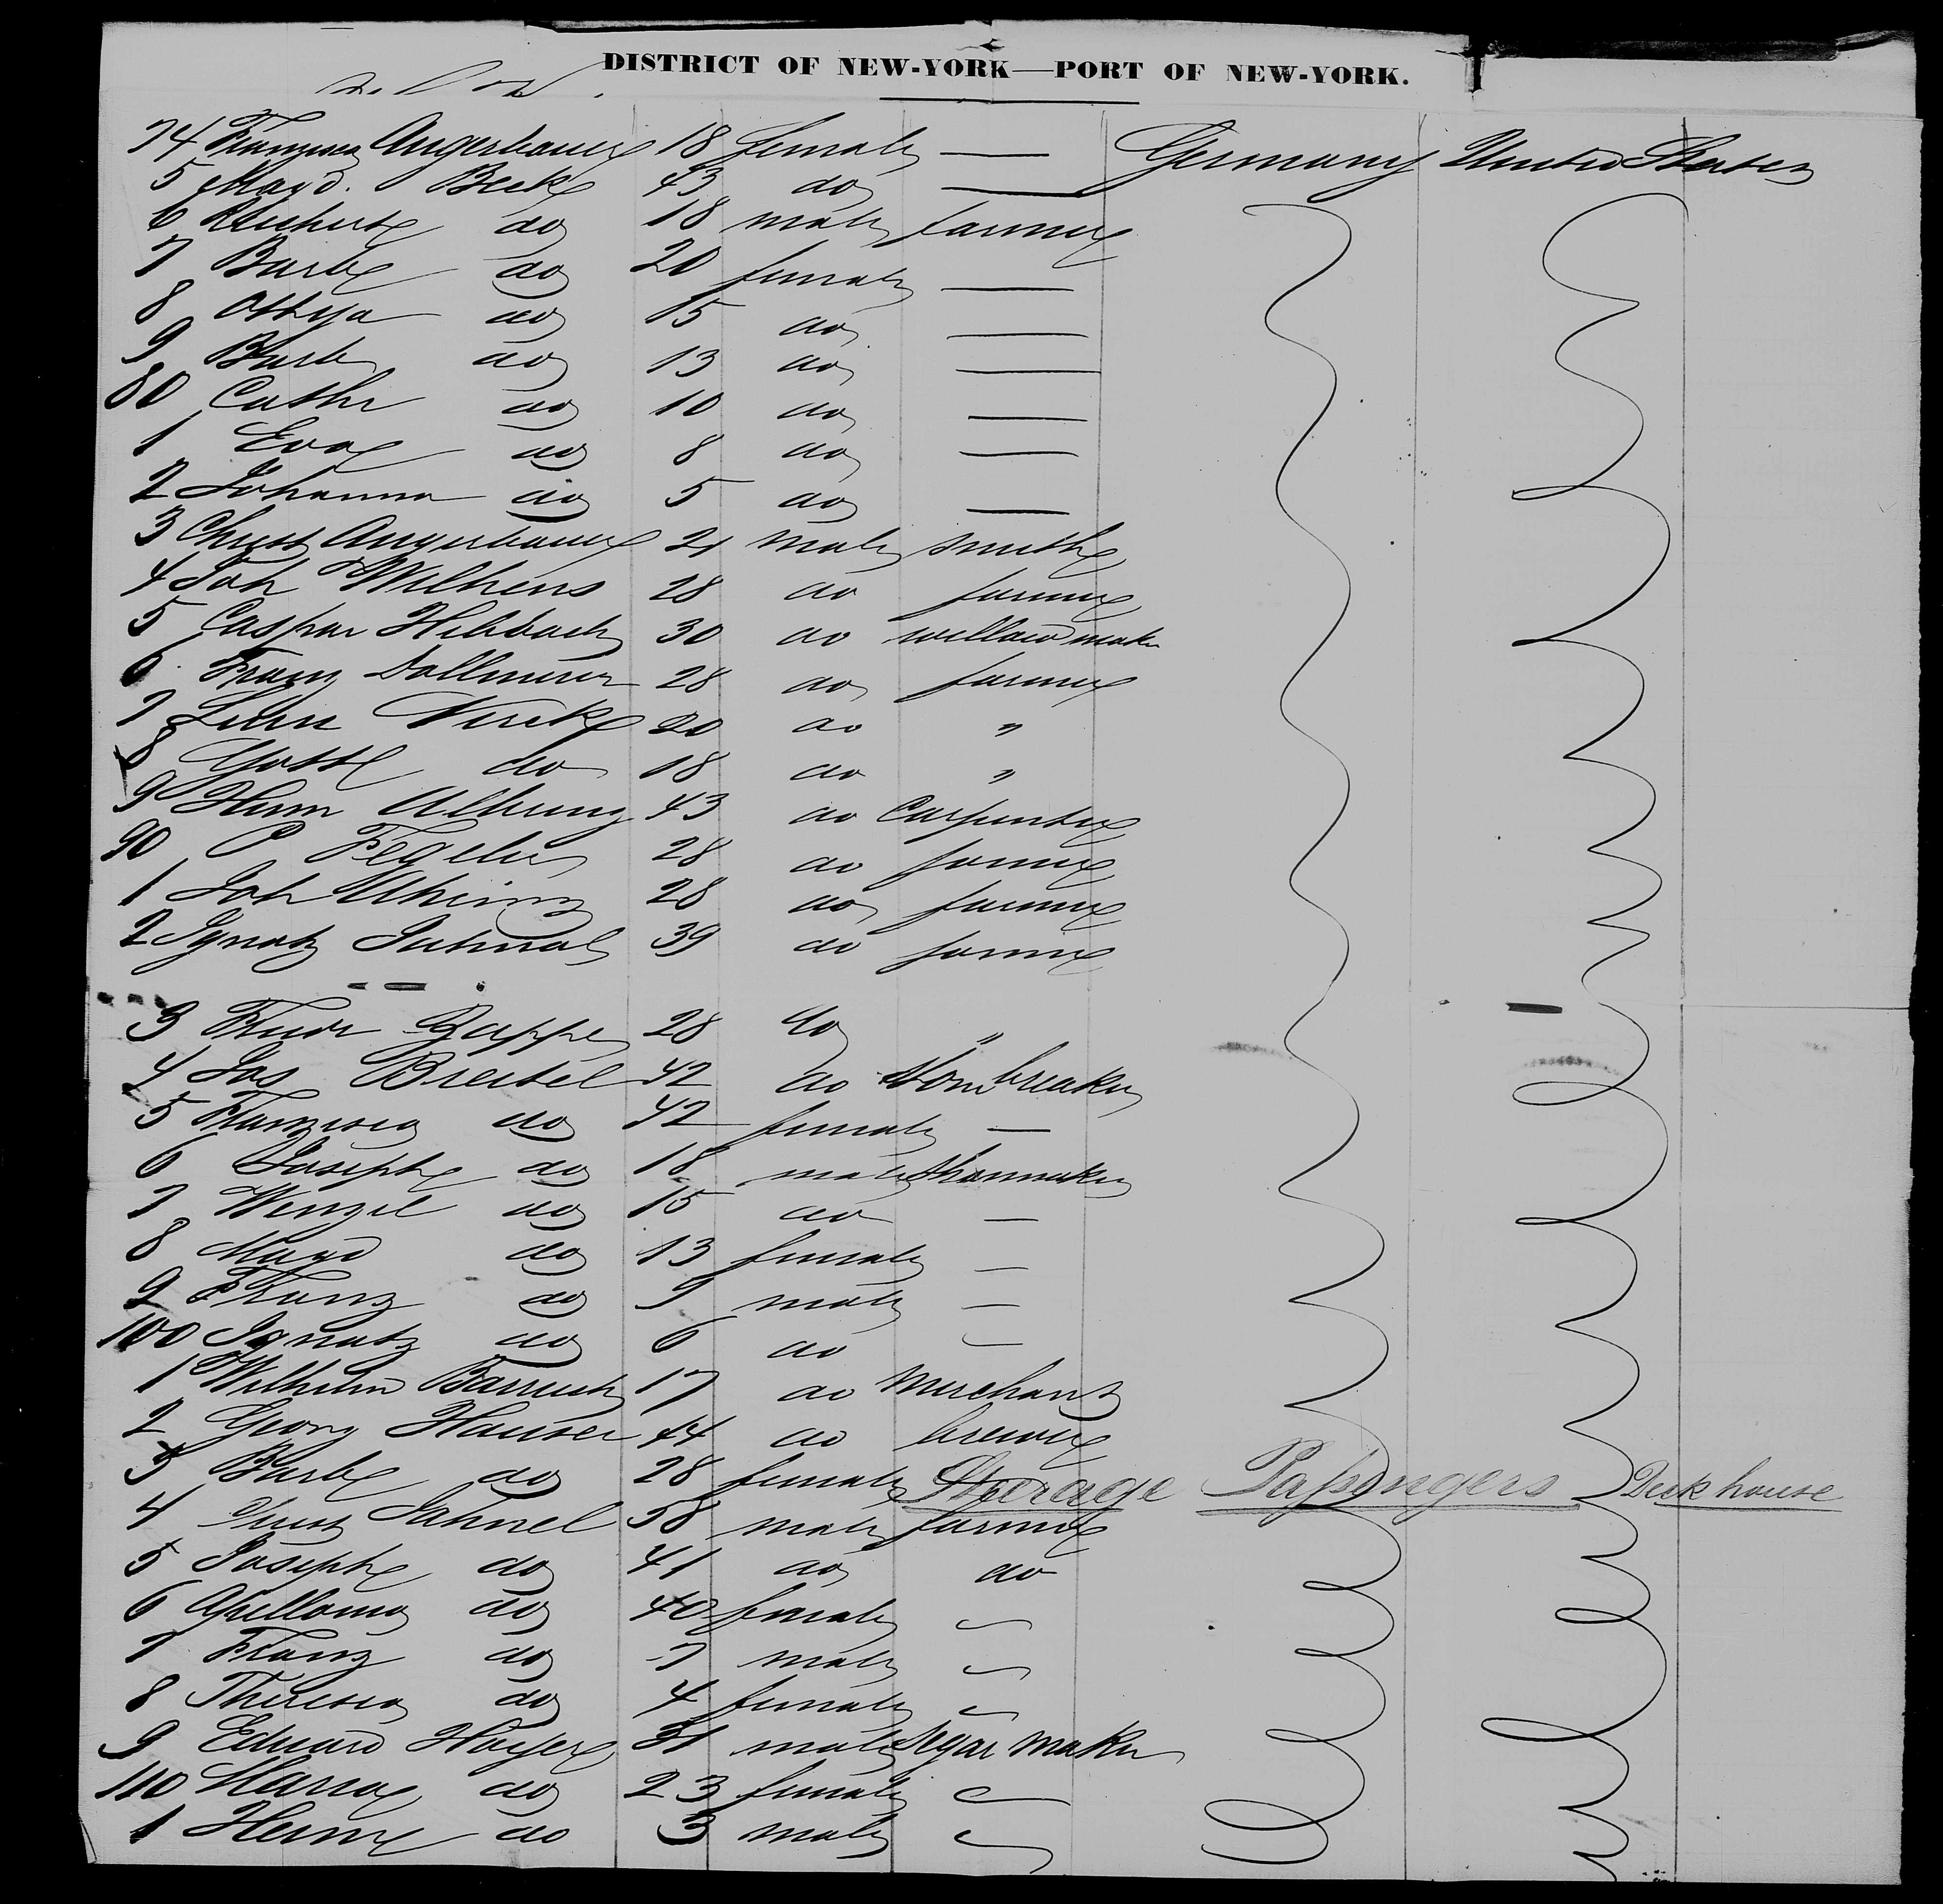 DISTRICT OF NEW-YORK—PORT OF NEW-YORK.
74 Franzisca Angerbauer 18 female — Germany United States
5 Magd. Beck 43 do —
6 do 18 male farmer
7 Barb do 20 female —
8 do 15 do —
9 Barb do 13 do —
80 Cathr do 10 do —
1 Eva do 8 do —
2 Johanna do 5 do —
3 Christ Angerbauer 21 male smith
4 Joh Wilkens 28 do farmer
5 Caspar Hebbach 30 do maker
6 Franz Dollmeier 28 do farmer
7 20 do "
8 Gottl do 18 do "
9 Herm 43 do Carpenter
90 P Fegeler 28 do farmer
1 Joh 28 do farmer
2 Ignatz 39 do farmer
3 Friedr Zappe 28 do "
4 Jos Breitel 42 do Stone breaker
5 Franzisca do 42 female —
6 Joseph do 18 male Shoemaker
7 Wenzel do 15 do —
8 Magd do 13 female —
9 Franz do 9 male —
100 Ignatz do 6 do —
1 Wilhelm 17 do Merchant
2 Georg Hauser 44 do brewer
3 Barb do 28 female Steerage Passengers Deck house
4 Jahnel 58 male farmer
5 Joseph do 41 do do
6 do 40 female
7 Franz do 7 male
8 Theresia do 4 female
9 Eduard Hoyer 31 male Segar maker
110 do 23 female
1 do 3 male